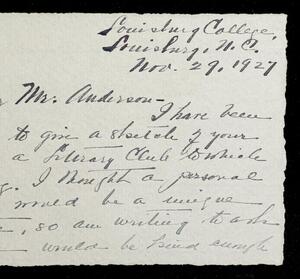 Louisburg College,
Louisburg, N.C.
Nov. 29, 1927
Mr. Anderson-
I have been
to give a sketch of your
a Literary Club to which
I thought a personal
would be a unique
, so am writing to ask
would be kind enough